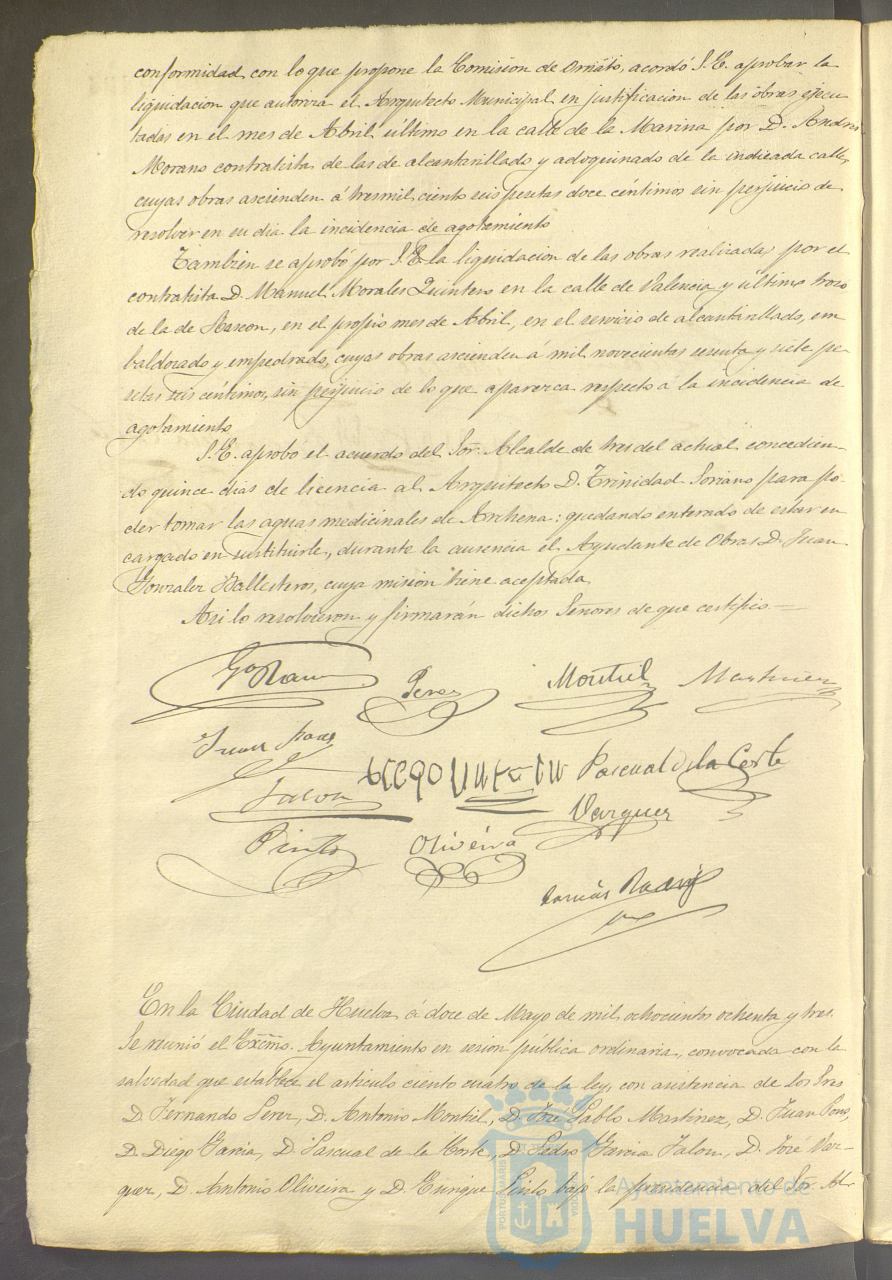 conformidad con lo que propone la Comision de Ornato, acordó S.E. aprobar la
liquidacion que autoriza el Arquitecto Municipal en justificacion de las obras ejecu-
tadas en el mes de Abril último en la calle de la Marina por D. Andrés
Morano contratista de las de alcantarillado y adoquinado de la indicada calle,
cuyas obras ascienden á tres mil ciento seis pesetas doce céntimos sin perjuicio de
resolver en su dia la incidencia de agotamiento
Tambien se aprobó por S.E. la liquidacion de las obras realizadas por el
contratista D. Manuel Morales Quintero en la calle de Valencia y último trozo
de la de Rascon, en el propio mes de Abril, en el servicio de alcantarillado, em
baldosado y empedrado, cuyas obras ascienden á mil novecientas sesenta y siete pe-
setas seis céntimos, sin perjuicio de lo que aparezca respecto á la incidencia de
agotamiento
S.E. aprobó el acuerdo del Sor. Alcalde de tres del actual concedien-
do quince dias de licencia al Arquitecto D. Trinidad Soriano para po-
der tomar las aguas medicinales de Archena: quedando enterado de estar en
cargado en sustituirle, durante la ausencia el Ayudante de Obras D. Juan
Gonzalez Ballesteros, cuya mision tiene aceptada
Asi lo resolvieron y firmarán dichos Señores de que certifico.=
Perez Montiel Martinez
Juan
Talon Pascual de la Corte
Vazquez
Pinto Oliveira
Tomás
En la Ciudad de Huelva á doce de Mayo de mil ochocientos ochenta y tres.
Se reunió el Excmo. Ayuntamiento en sesion pública ordinaria, convocada con la
salvedad que establece el artículo ciento cuatro de la ley, con asistencia de los Sres
D. Fernando Perez, D. Antonio Montiel, D. José Pablo Martinez, D. Juan Pons,
D. Diego Garcia, D. Pascual de la Corte, D. Pedro Garcia Talon, D. José Vaz-
quez, D. Antonio Oliveira y D. Enrique Pinto bajo la presidencia del Sor. Al-
Ayuntamiento de
HUELVA